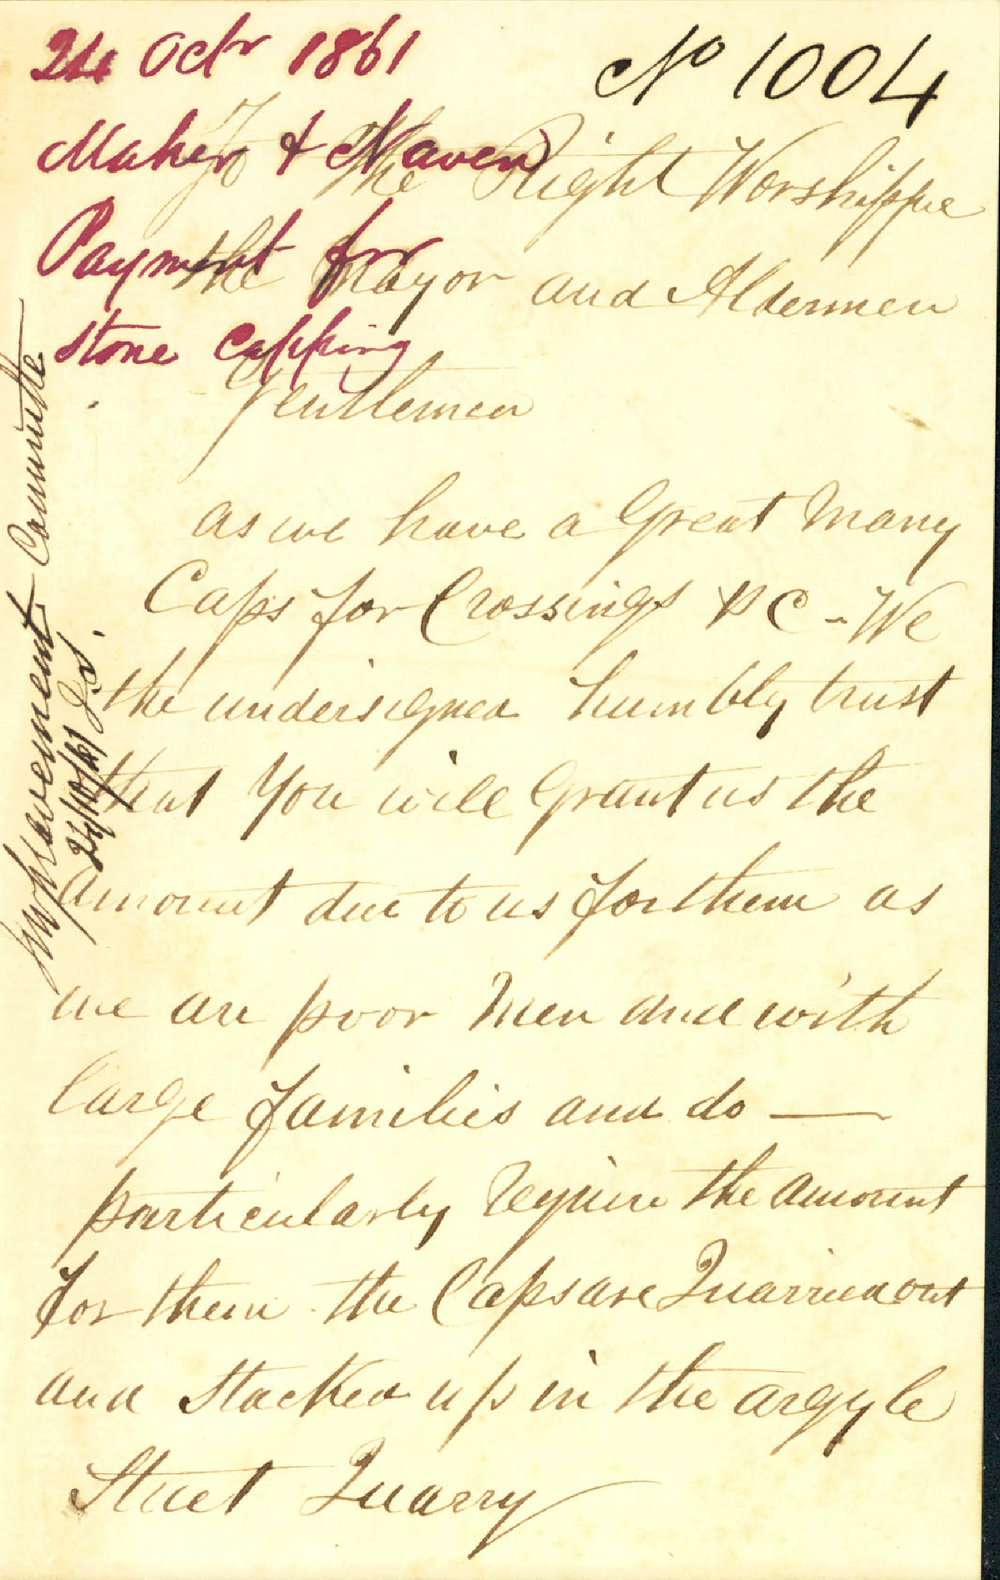 24 Octr 1861
No 1004
Maher & Naven
Payment for
stone capping
To The Right Worshippe
the Mayor and Aldermen
Gentlemen
as we have a Great Many
Caps for Crossings &c - We
the undersigned humbly trust
that You will Grant us the
amount due to us for them as
we are poor Men and with
large families and do —
particularly require the amount
for them the Caps are Quarried out
and Stacked up in the argyle
Street Quarry
Improvement Committe
24/10/61